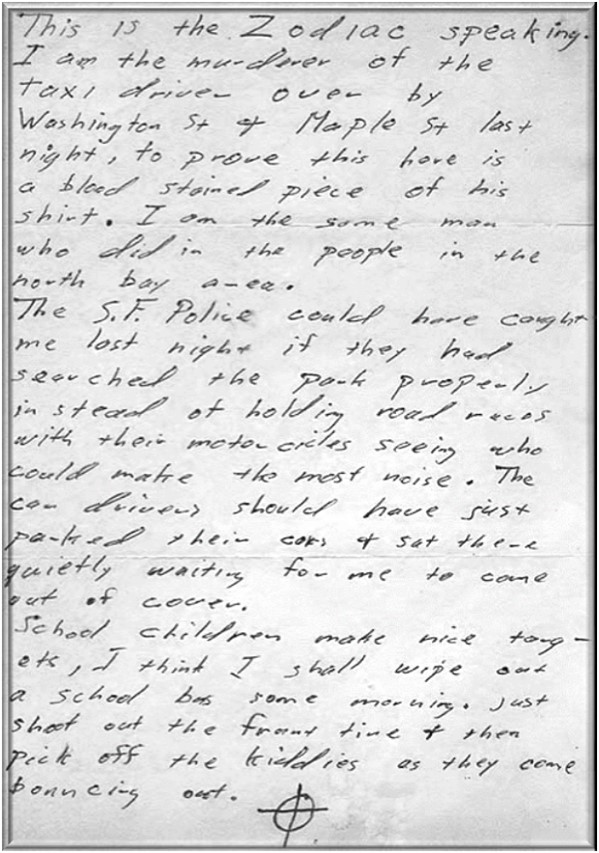 This is the Zodiac speaking.
I am the murderer of the
taxi driver over by
Washington St + Maple St last
night, to prove this here is
a blood stained piece of his
shirt. I am the same man
who did in the people in the
north bay area.
The S.F. Police could have caught
me last night if they had
searched the park properly
in stead of holding road races
with their motorcicles seeing who
could make the most noise. The
car drivers should have just
parked their cars + sat there
quietly waiting for me to come
out of cover.
School children make nice targ-
ets, I think I shall wipe out
a school bus some morning. Just
shoot out the front tire + then
pick off the kiddies as they come
bouncing out.